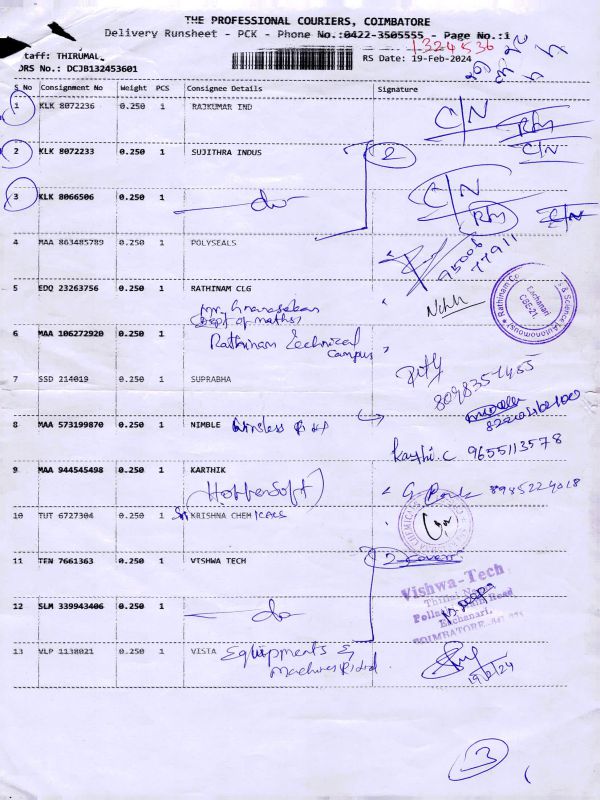 THE PROFESSIONAL COURIERS, COIMBATORE
Delivery Runsheet - PCK - Phone No.:0422-3505555 - Page No.:1
1324536
taff: THIRUMAL
DRS No.: DCJB132453601
RS Date: 19-Feb-2024
S No Consignment No Weight PCS Consignee Details Signature
1 KLK 8072236 0.250 1 RAJKUMAR IND C/N
C/N
2 KLK 8072233 0.250 1 SUJITHRA INDUS 2
3 KLK 8066506 0.250 1 do C/N
C/N
4 MAA 863485789 0.250 1 POLYSEALS 95006 77911
5 EDQ 23263756 0.250 1 RATHINAM CLG
Mr. Gnanasekar
(Dept of maths)
Rathinam Co & Science (Autonomous) Eachanari CBE-21
6 MAA 106272920 0.250 1 Rathinam Technical Campus
7 SSD 214019 0.250 1 SUPRABHA
8098351455
8 MAA 573199870 0.250 1 NIMBLE Wireless
Karthi.c 9655113578
9 MAA 944545498 0.250 1 KARTHIK
(HopperSoft) 8985224018
10 TUT 6727304 0.250 1 Sri KRISHNA CHEMICALS
11 TEN 7661363 0.250 1 VISHWA TECH 2 covers
Vishwa-Tech
Road
Eachanari,
COIMBATORE
12 SLM 339943406 0.250 1 do
13 VLP 1138021 0.250 1 VISTA Equipments &
Machines
19/2/24
3